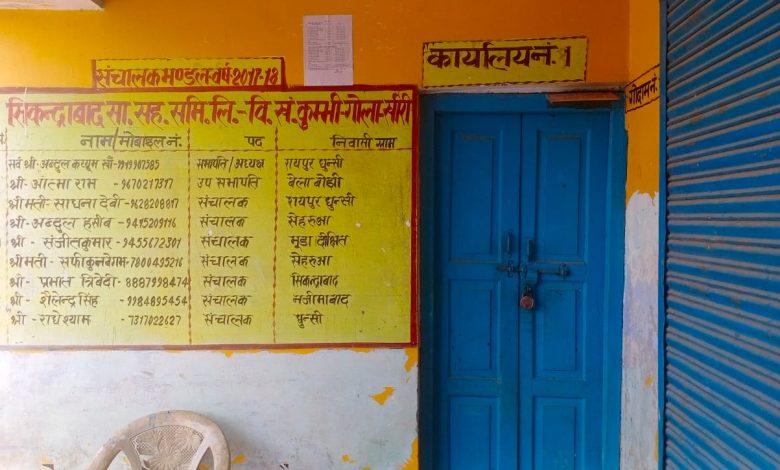 संचालक मण्डल वर्ष 2017-18
कार्यालय नं. 1
गोदाम नं.
सिकन्द्राबाद सा. सह. समि. लि.- वि. सं. कुम्भी-गोला-खीरी
नाम/मोबाइल नं. पद निवासी ग्राम
सर्व श्री- अब्दुल कय्यूम खाँ-9919907585 सभापति/अध्यक्ष रायपुर घुन्सी
श्री- आत्मा राम - 9670217317 उप सभापति बेला बोझी
श्रीमती- साधना देवी-9628208817 संचालक रायपुर घुन्सी
श्री- अब्दुल हसीब-9415209116 संचालक सेहरुआ
श्री - संजीतकुमार - 9455672301 संचालक मूडा दीक्षित
श्रीमती- सफीकुनबेगम-7800495216 संचालक सेहरुआ
श्री- प्रभात त्रिवेदी- 8887998474 संचालक सिकन्द्राबाद
श्री - शैलेन्द्र सिंह - 9984895454 संचालक नजीमाबाद
श्री - राधेश्याम - 7317022627 संचालक घुन्सी